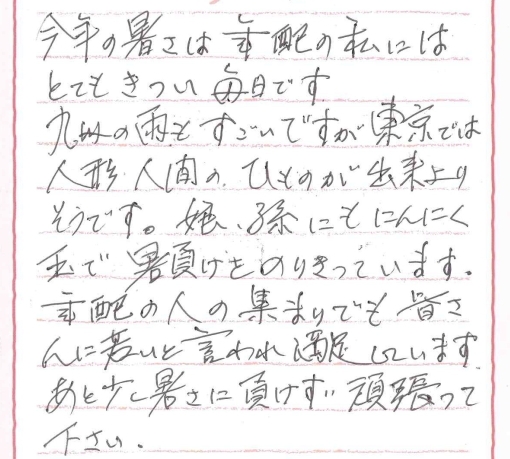 今年の暑さは年配の私には
とてもきつい毎日です
九州の雨もすごいですが東京では
人形人間の、ひものが出来より
そうです。娘、孫にもにんにく
玉で暑負けをのりきっています。
年配の人の集まりでも皆さ
んに若いと言われ満足しています
あと少し暑さに負けず頑張って
下さい.